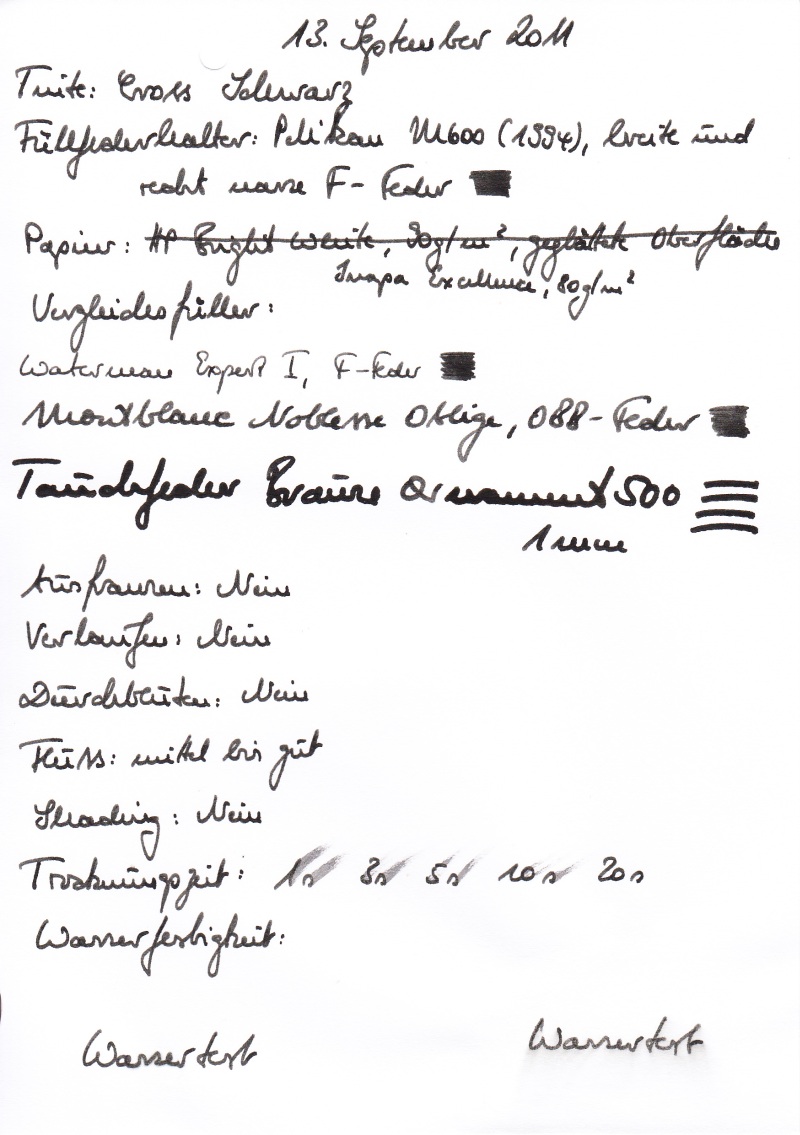 13. September 2011
Tinte: Cross Schwarz
Füllfederhalter: Pelikan M600 (1994), breite und
recht nasse F-Feder
Papier: HP Bright White, 90g/m², geglättete Oberfläche
Inapa Excellence, 80g/m²
Vergleichsfüller:
Waterman Expert I, F-Feder
Montblanc Noblesse Oblige, OBB-Feder
Tauchfeder Brause Ornament 500
1 mm
Ausfransen: Nein
Verlaufen: Nein
Durchbluten: Nein
Fluss: mittel bis gut
Shading: Nein
Trocknungszeit: 1s 3s 5s 10s 20s
Wasserfestigkeit:
Wassertest Wassertest